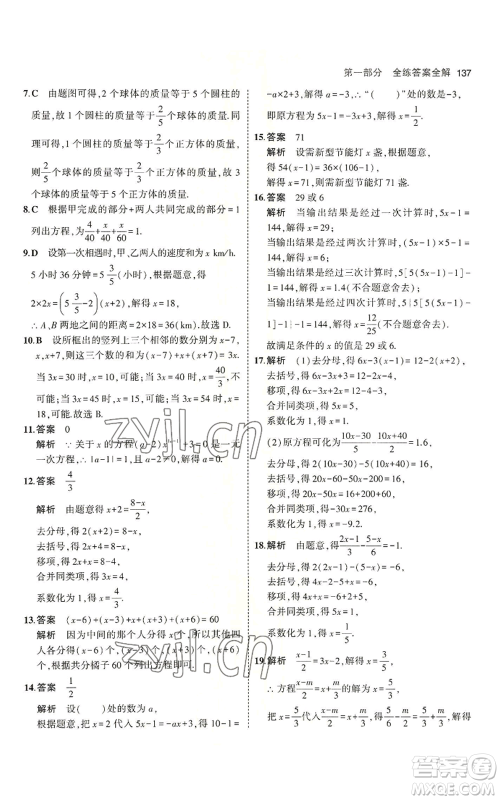 第一部分 全练答案全解 137
7.C 由题图可得,2个球体的质量等于5个圆柱的
质量,因此1个球体的质量等于5/2个圆柱的质量.同
理可得,1个正方体的质量等于5/3个圆柱的质量,
则3个球体的质量等于
8.C 根据甲完成的部分+两人共同完成的部分=1
列出方程,为4/40+x/40+x/60=1.
9.D 设第一次相遇时,甲、乙两人的速度和为x km/h.
5小时36分钟=5 3/5(小时).根据题意,得
∴A,B两地之间的距离=2×18=36(km).故选D.
10.B 设所框出的竖列上三个相邻的数分别为x-
7,x,x+7,则这三个数的和为(x-7)+x+(x+7)=3x.
当3x=30时,x=10,当3x=40时,x=40/3,
当3x=45时,x=15,当3x=54时,x=
18.故選B.
11.答案 0
解析 ∵关于x的方程(a-2)x^|a-1|+3=0是一元
一次方程,∴|a-1|=1,且a-2≠0,解得a=0.
12.答案 4/3
解析 由题意得x+2=(8-x)/2,
去分母,得2(x+2)=8-x,
去括号,得2x+4=8-x,
移项,得2x+x=8-4,
合并同类项,得3x=4,
系数化为1,得x=4/3.
13.答案 (x-6)+(x-3)+x+(x+3)+(x+6)=60
解析 因为中间的那个人分得x个,则其余四
人各分得(x-6)个、(x-3)个、(x+3)个、(x+6)
个,根据共分橘子60个列出方程即可.
14.答案 1/2
解析 设“( )”处的数为a,
根据题意,把x=2代入5x-1=-ax+3,得10-1=
-a×2+3,解得a=-3,∴“( )”处的数是-3,
即原方程为5x-1=3x+3,解得x=
15.答案 71
解析 设需新型节能灯x盏,根据题意,
得54(x-1)=36×(106-1),
解得x=71,则需新型节能灯71盏.
16.答案 29或6
解析 当输出结果是经过一次计算时,5x-1=
144,解得x=29.
当输出结果是经过两次计算时,5(5x-1)-1=
144,解得x=6.
当输出结果是经过三次计算时,5[5(5x-1)-1]
-1=144,解得x=1.4(不符合题意,舍去).
当输出结果是经过四次计算时,
-1=144,解得x=12/25(不符合题意,舍去).
故满足条件的x的值是29或6.
17.解析 (1)去分母,得6x-3(x-1)=12-2(x+2),
去括号,得6x-3x+3=12-2x-4,
移项,得6x-3x+2x=12-4-3,
合并同类项,得5x=5,
系数化为1,得x=1.
(2)原方程可化为(10x-30)/5-(10x+40)/2=1.6,
去分母,得2(10x-30)-5(10x+40)=16,
去括号,得20x-60-50x-200=16,
移项,得20x-50x=16+200+60,
合并同类项,得-30x=276,
系数化为1,得x=-9.2.
18.解析 由题意,得(2x-1)/3-(5-x)/6=-1.
去分母,得2(2x-1)-(5-x)=-6,
去括号,得4x-2-5+x=-6,
移项,得4x+x=-6+2+5,
合并同类项,得5x=1,
系数化为1,得x=1/5.
19.解析
把x=5/3代入x+m/3=x/2-m,解得
zyjl.cn
zyjl.cn